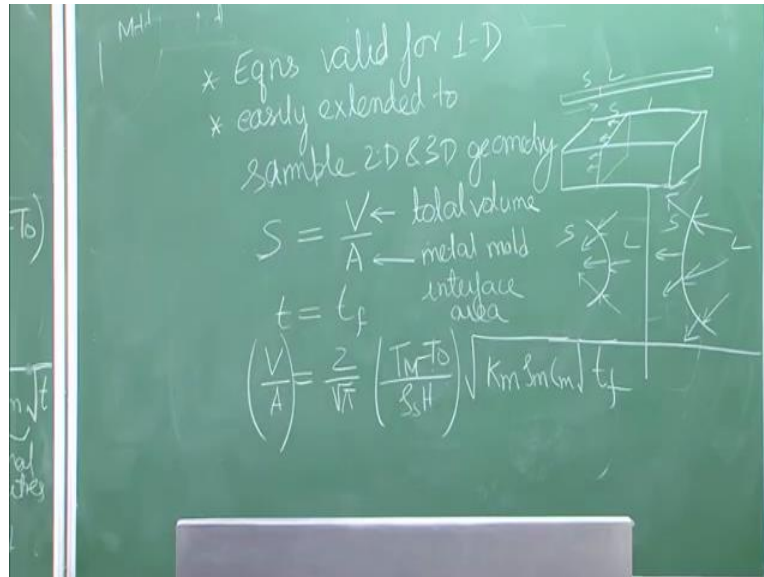 * Eqns valid for 1-D
* easily extended to
sample 2D & 3D geometry
S = V/A ← total volume
← metal mold
interface
area
t = t_f
(V/A) = 2/√π (T_M-T_0 / ρ_s H) √K_m ρ_m C_m √t_f
S L
S L
S L
S L
T_0)
√t